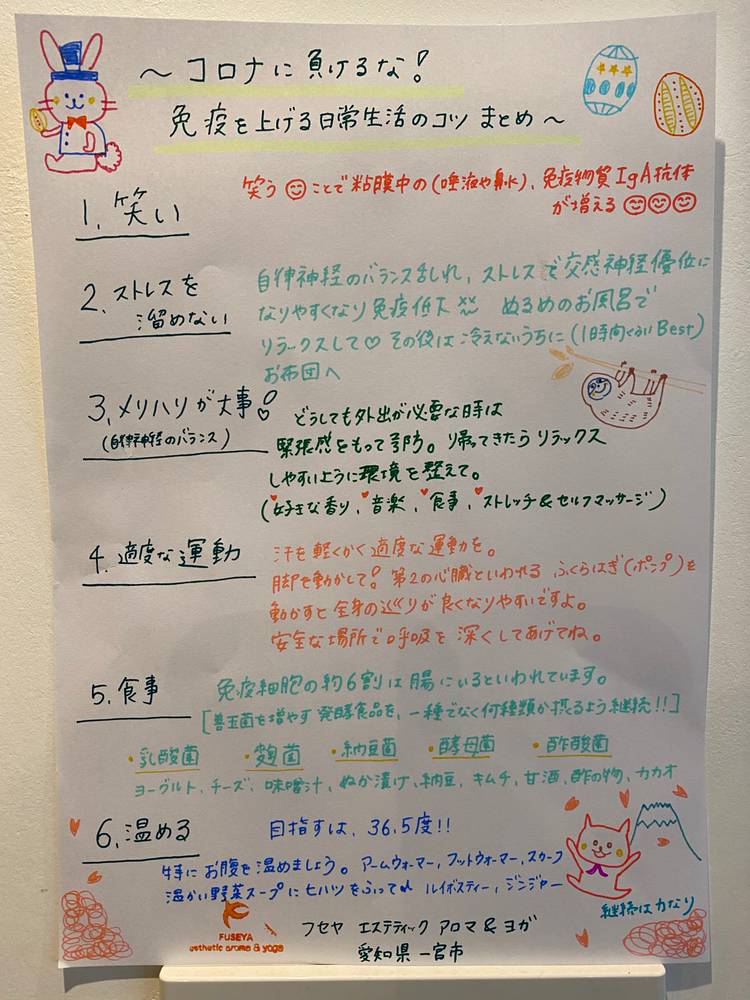 ～コロナに負けるな！
免疫を上げる日常生活のコツ まとめ～
1. 笑い
笑うことで粘膜中の(唾液や鼻水)、免疫物質IgA抗体
が増える
2. ストレスを
溜めない
自律神経のバランス乱れ、ストレスで交感神経優位に
なりやすくなり免疫低下 ぬるめのお風呂で
リラックスして♡ その後は冷えないうちに(1時間ぐらいBest)
お布団へ
3. メリハリが大事！
(自律神経のバランス)
どうしても外出が必要な時は
緊張感をもって予防。帰ってきたらリラックス
しやすいように環境を整えて。
(好きな香り、音楽、食事、ストレッチ&セルフマッサージ)
4. 適度な運動
汗を軽くかく適度な運動を。
脚を動かして！第2の心臓といわれる ふくらはぎ(ポンプ)を
動かすと全身の巡りが良くなりやすいですよ。
安全な場所で呼吸を深くしてあげてね。
5. 食事
免疫細胞の約6割は腸にいるといわれています。
[善玉菌を増やす発酵食品を、一種でなく何種類か摂るよう継続!!]
・乳酸菌 ・麹菌 ・納豆菌 ・酵母菌 ・酢酸菌
ヨーグルト、チーズ、味噌汁、ぬか漬け、納豆、キムチ、甘酒、酢の物、カカオ
6. 温める
目指すは、36.5度!!
特にお腹を温めましょう。アームウォーマー、フットウォーマー、スカーフ
温かい野菜スープにヒハツをふって♪ ルイボスティー、ジンジャー
継続は力なり
FUSEYA
esthetic aroma & yoga
フセヤ エステティック アロマ & ヨガ
愛知県一宮市